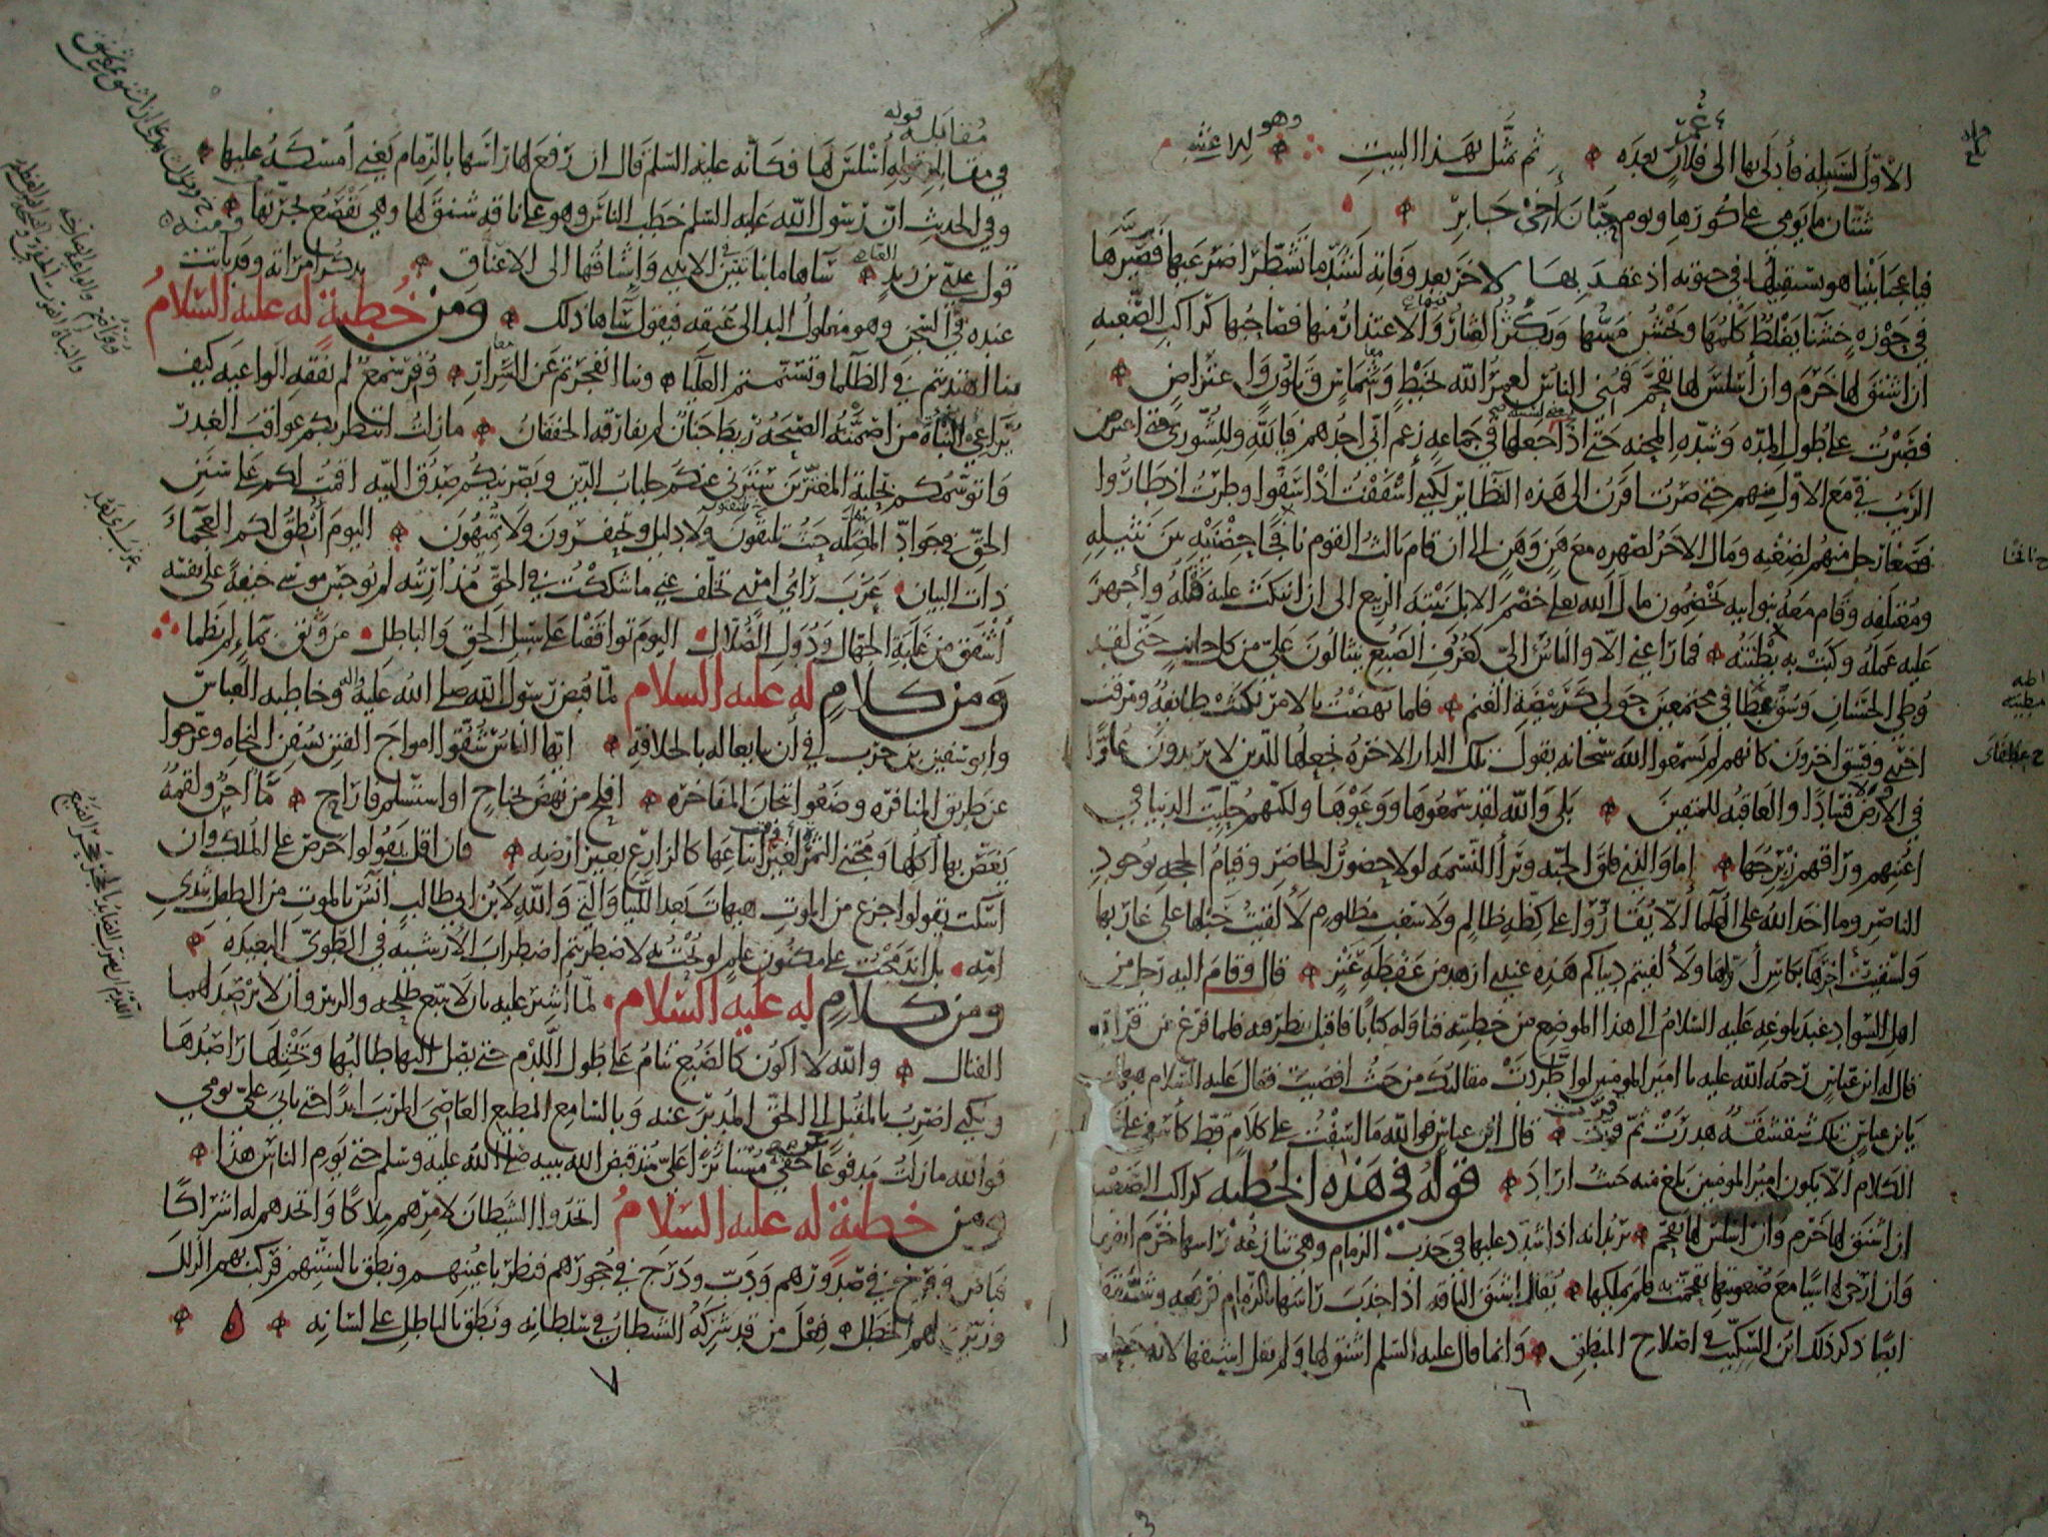 الاوّل لسبيله فأدلى بها الى فلان بعده ثم تمثّل بهذا البيت وهو للاعشى
شتّان ما يومى على كورها ويوم حيّان أخى جابر
فيا عجبا بَيْنا هو يستقيلها فى حيوته اذ عقد بها لاخر بعد وفاته لشدّ ما تشطّرا ضرعيها فصيّرها
فى حوزه خشنا يغلظ كلمها ويخشن مسّها ويكثر العثار والاعتذار منها فصاحبها كراكب الصّعبه
ان اشنق لها خرم وان أسلس لها تقحّم فمنى الناس لعمر الله بخبط وشماس وتلوّن واعتراض
فصبرت على طول المدّه وشدّه المحنه حتى اذا جعلها فى جماعه زعم انّى احدهم فيا للّه وللشورى متى اعترض
الرّيب فىّ مع الاوّل منهم حتى صرت اقرن الى هذه النّظائر لكنى أسففت اذ اسفّوا وطرت اذ طاروا
فصغا رجل منهم لضغنه ومال الآخر لصهره مع هن وهن الى ان قام ثالث القوم نافجًا حضنيه بين نثيله
ومعتلفه وقام معه بنو ابيه يخضمون مال الله تعالى خضم الابل نبتة الربيع الى ان انتكث عليه فتله وأجهز
عليه عمله وكبت به بطنته فما راعنى الا والناس الىّ كعرف الضبع ينثالون علىّ من كل جانب حتى لقد
وطئ الحسنان وشقّ عطفاى مجتمعين حولى كربيضة الغنم فلما نهضت بالامر نكثت طائفه ومرقت
اخرى وقسط اخرون كانهم لم يسمعوا الله سبحانه يقول تلك الدار الاخره نجعلها للذين لا يريدون علوّا
فى الارض ولا فسادا والعاقبه للمتقين بلى والله لقد سمعوها ووعوها ولكنهم حليت الدنيا فى
اعينهم وراقهم زبرجها اما والذى فلق الحبّه وبرأ النّسمه لولا حضور الحاضر وقيام الحجه بوجود
الناصر وما اخذ الله على العلما ألّا يقارّوا على كظّه ظالم ولا سغب مظلوم لألقيت حبلها على غاربها
ولسقيت اخرها بكاس أوّلها ولألفيتم دنياكم هذه عندى ازهد من عفطة عنز قال وقام اليه رجل من
اهل السواد عند بلوغه عليه السلام الى هذا الموضع من خطبته فناوله كتابًا فاقبل ينظر فيه فلما فرغ من قراته
قال له ابن عباس رحمه الله عليه يا امير المومنين لو اطّردت مقالتك من حيث افضيت فقال عليه السلام هيهات
يابن عباس تلك شقشقة هدرت ثمّ قرّت قال ابن عباس فوالله ما اسفت على كلام قط كأسفى على
الكلام ألّا يكون امير المومنين بلغ منه حيث اراد قوله فى هذه الخطبه كراكب الصّعبه
ان اشنق لها خرم وان اسلس لها تقحّم يريد انه اذا شدّد عليها فى جذب الزمام وهى تنازعه راسها خرم انفها
وان ارخى لها شيا مع صعوبتها تقحّمت به فلم يملكها يقال اشنق الناقة اذا جذب راسها بالزمام فرفعه وشنقها
ايضا ذكر ذلك ابن السكّيت فى اصلاح المنطق وانما قال عليه السلم اشنق لها ولم يقل اشنقها لانه جعله
٦
فى مقابله قوله أسلس لها فكأنه عليه السّلم قال ان رفع لها راسها بالزّمام يعنى أمسكه عليها
وفى الحديث انّ رسول الله عليه السلم خطب الناس وهو على ناقه شنق لها وهى تقصع بجرّتها
قول عدىّ بن زيد ساها ما بنا تبيّن فى الايدى وإشناقها الى الاعناق
ومن خطبة له عليه السلام
بنا اهتديتم فى الظّلما وتسنّمتم العليا وبنا انفجرتم عن السّرار وقر سمع لم يفقه الواعيه كيف
يراعى النبأة من اصمّته الصيحه ربط جنان لم يفارقه الخفقان ما زلت انتظر بكم عواقب الغدر
واتوسّمكم بحلية المغترّين سترنى عنكم جلباب الدّين وبصّرنيكم صدق النيه اقمت لكم على سنن
الحق فى جوادّ المضلّه حيث تلتقون ولا دليل وتحتفرون ولا تميهون اليوم أنطق لكم العجماء
ذات البيان عزب راى امرئ تخلّف عنى ما شككت فى الحق مذ اريته لم يوجس موسى خيفة على نفسه
أشفق من غلبة الجهال ودول الضّلال اليوم تواقفنا على سبيل الحق والباطل من وثق بماء لم يظما
ومن كلام له عليه السلام لمّا قبض رسول الله صلى الله عليه واله وخاطبه العباس
وابو سفين بن حرب فى أن يبايعا له بالخلافه ايّها الناس شقّوا امواج الفتن بسفن النجاه وعرّجوا
عن طريق المنافره وضعوا تيجان المفاخره افلح من نهض بجناح او استسلم فاراح ماء اجن ولقمة
يغصّ بها أكلها ومجتنى الثمرة لغير وقت ايناعها كالزارع بغير ارضه فان اقل يقولوا حرص على الملك وان
اسكت يقولوا جزع من الموت هيهات بعد اللّتيا والّتى والله لابن ابى طالب آنس بالموت من الطفل بثدى
امّه بل اندمجت على مكنون علم لو بحت به لاضطربتم اضطراب الارشيه فى الطّوىّ البعيده
ومن كلام له عليه السلام لمّا أشير عليه بان لا يتبع طلحه والزبير وان لا يرصد لهما
القتال والله لا اكون كالضبع تنام على طول اللدم حتى يصل اليها طالبها ويختلها راصدها
ولكنى اضرب بالمقبل الى الحق المدبر عنه وبالسامع المطيع العاصى المريب ابدا حتى ياتى علىّ يومى
فوالله ما زلت مدفوعا عن حقى مستاثرا علىّ منذ قبض الله نبيه صلى الله عليه وسلم حتى يوم الناس هذا
ومن خطبة له عليه السلام اتخذوا الشيطان لامرهم ملاكًا واتخذهم له اشراكًا
فباض وفرّخ فى صدورهم ودبّ ودرج فى حجورهم فنظر باعينهم ونطق بالسنتهم فركب بهم الزلل
وزيّن لهم الخطل فعل من قد شركه الشيطان فى سلطانه ونطق بالباطل على لسانه
٧